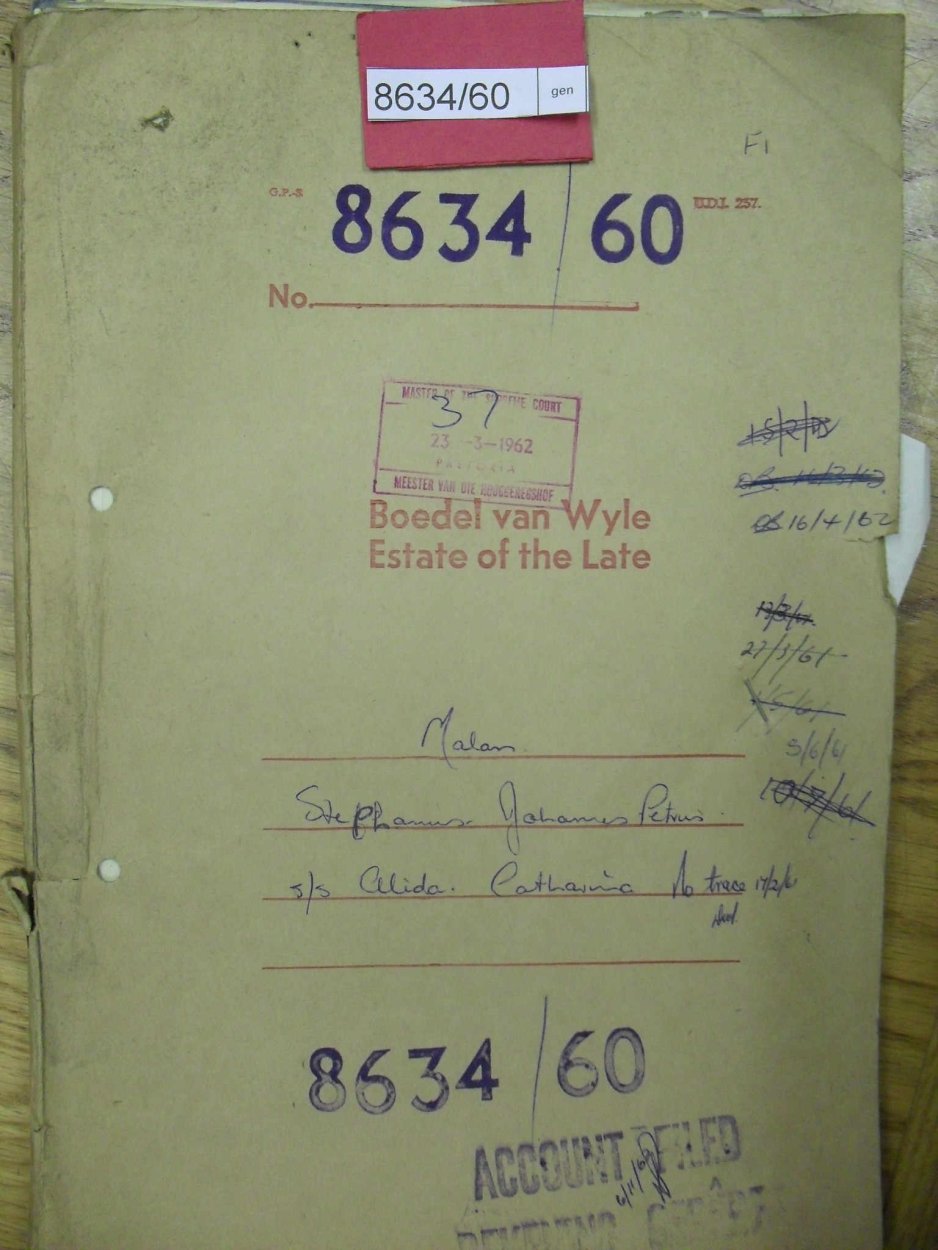 8634/60 gen
F1
G.P.-S. 8634/60 U.D.I. 257.
No.
MASTER OF THE SUPREME COURT
37
23 -3-1962
PRETORIA
MEESTER VAN DIE HOOGGEREGSHOF
Boedel van Wyle
Estate of the Late
16/4/62
27/3/61
Malan
5/6/61
Stephanus Johannes Petrus
s/s Alida Catharina No trace 17/2/61
8634/60
ACCOUNT FILED